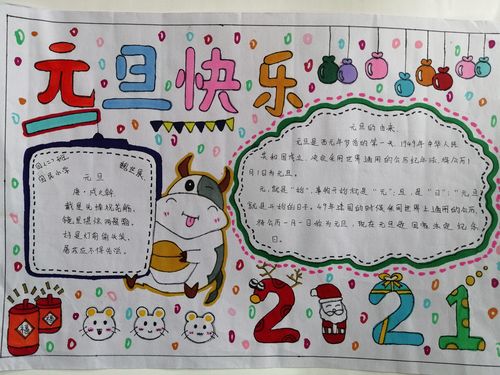 元旦快乐
四(二)班
国民小学
元旦
戴星先捧祝尧觞,
镜里堪惊两鬓霜。
好是灯前偷失笑,
屠苏应不得先尝。
元旦的由来
元旦是西元年岁首的第一天。1949年中华人民
共和国成立,决定采用世界通用的公历纪年法,将公历
1月1日为元旦。
元,就是"始",开始都是"元",旦,是"日","元旦"
就是开始的日子。49年建国的时候采用世界上通用的公历,
将公历一月一日始为元旦,现在元旦是国法定纪念
日。
福 福
2 2 1